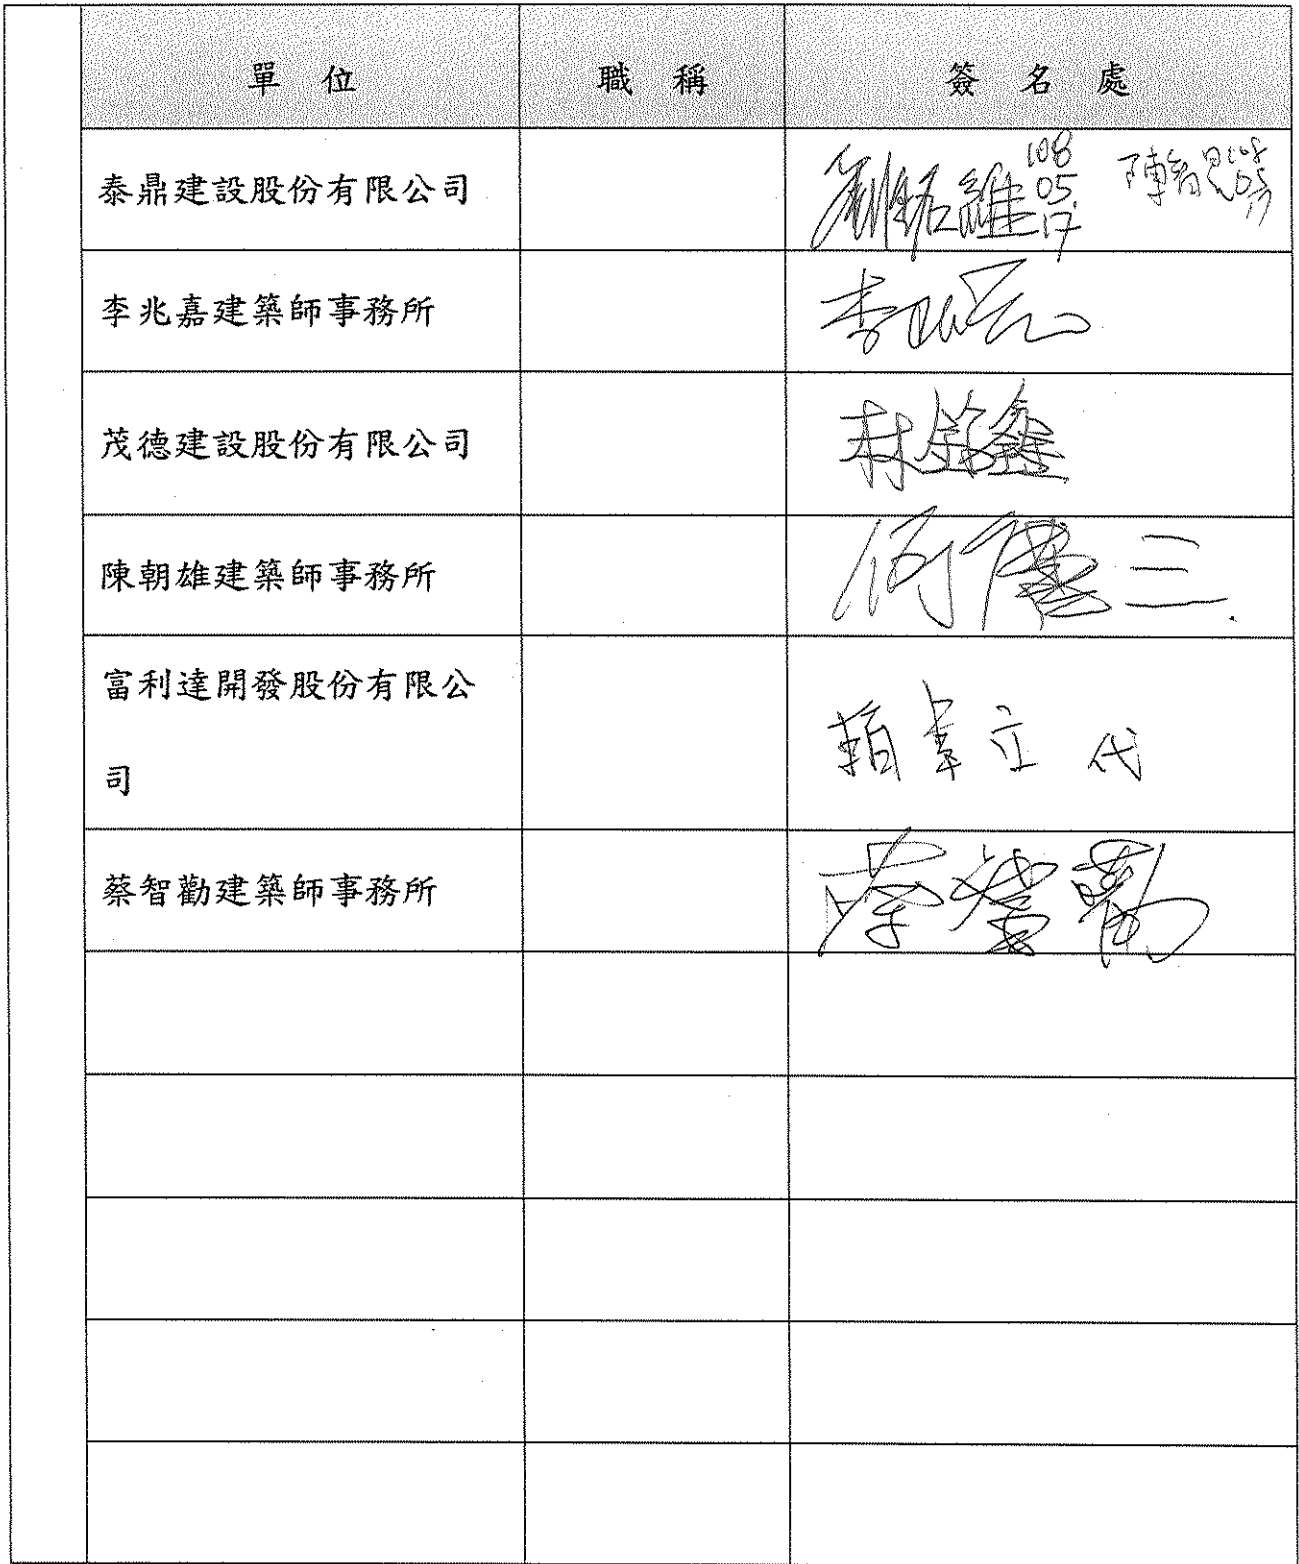 單位 職稱 簽名處
泰鼎建設股份有限公司 108 05 17
李兆嘉建築師事務所
茂德建設股份有限公司 林銘鑫
陳朝雄建築師事務所 三
富利達開發股份有限公
司
立 代
蔡智勸建築師事務所 蔡智勸